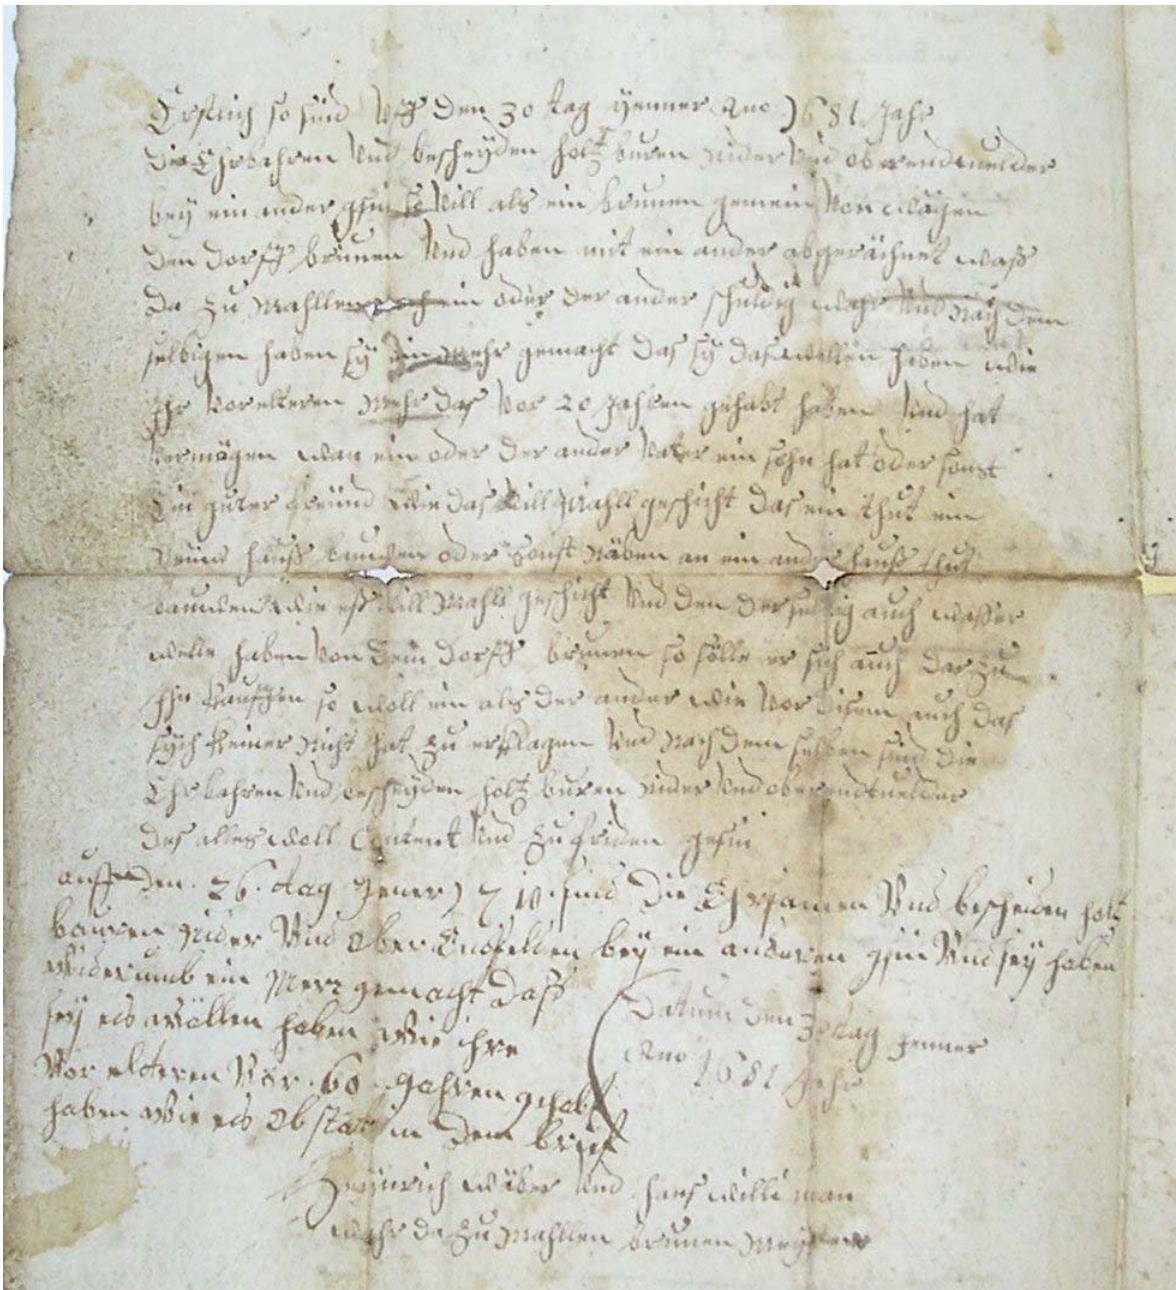 Erstlich so sind Uff den 30 tag Jenner Ano 1681 Jahr
die Ehrbahren Und bescheyden holtz buren Nider Und oberendtuelder
bey ein ander gsin so Vill als ein brunen gemein Von wägen
den dorff brunen Und haben mit ein ander abgerächnet waß
da zu Mahllen ein oder der ander schuldig wahr Und Nach dem
selbigen haben sy ein Mehr gemacht das sy das wellen haben wie
Ihr Vorelteren Mehr das Vor 20 Jahren gehabt haben Und hat
Vermögen wan ein oder der ander Vater ein sohn hat oder sonst
Ein guter freünd wie das Vill Mahll geschicht das ein thut ein
Neüw hauß bauwen oder sonst Näben an ein ander hauß thut
bauwen wie eß Vill Mahll geschicht Und den derselbig auch waßer
welle haben Von dem dorff brunen so sölle er sich auch dar zu
Ihn kauffen so woll ein als der ander wie Vor disem auch das
sych keiner Nicht hat zu erklagen Und Nach dem selben sind die
Ehrbahren Und bescheyden holtz buren Nider Und oberendtuelder
des alles woll Content Und zu friden gesin
auff den 26. tag Jener 1710. sind die Ehrsamen Und bescheiden holtz
bauren Nider Und Ober Endfelden bey ein anderen gsin Und sey haben
widerumb ein Merr gemacht daß
sey eds wöllen haben wie ihre
Vor elteren Vor 60 Jahren gehabt
haben wie eds Ob stat in dem brief
Datum den 30 tag Jenner
Ano 1681 Jahr
Heinrich wäber Und hans willi man
wahr da zu Mahllen brunen Meyster